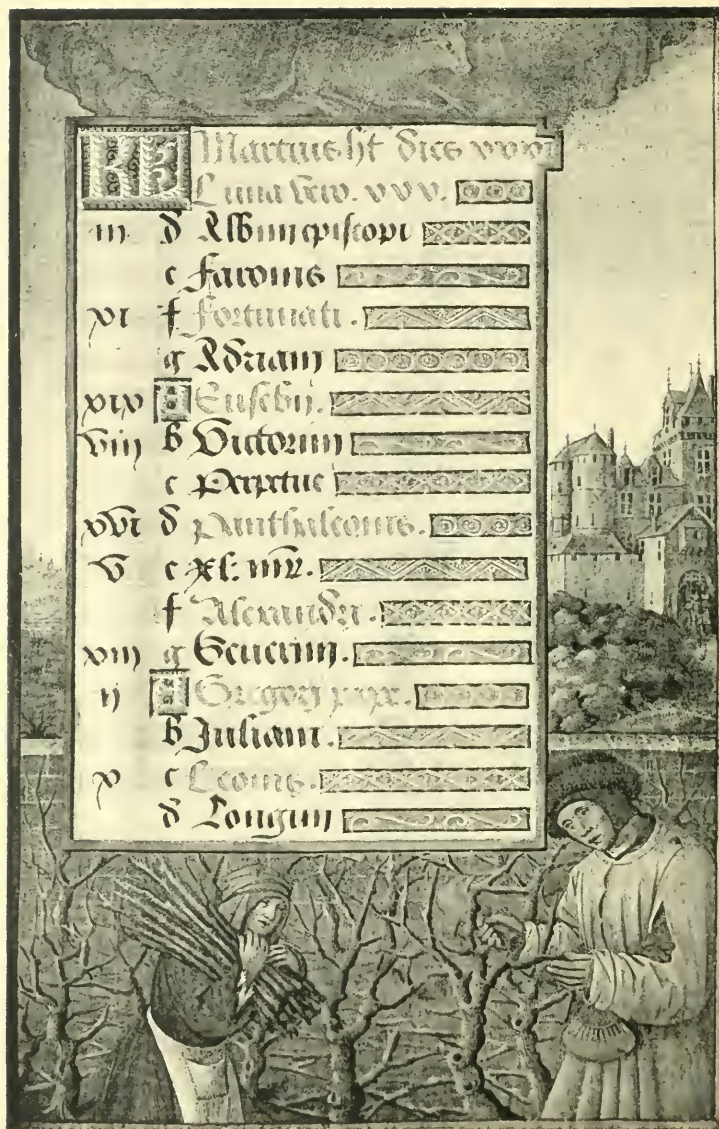 KL Martius ht dies xxxi
Luna vero. xxx.
iii d Albini episcopi
e Faronis
xi f Fortunati.
g Adriani
xix A Eusebij.
viii b Victorini
c Perpetue
xvi d Panthaleonis.
v e xl: mr.
f Alexandri.
xiii g Severini.
ii A Gregorij
b Juliani.
x c Leonis.
d Longini